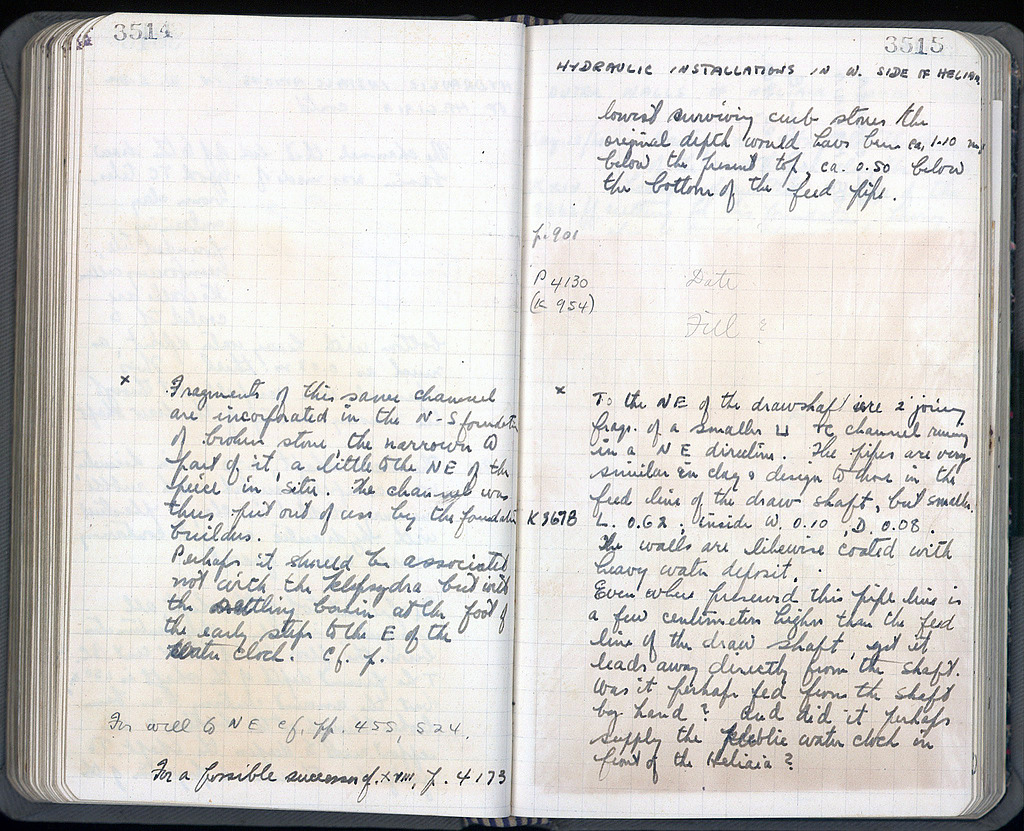 3514
x Fragments of this same channel
are incorporated in the N-S foundation
of broken stone, the narrow N
part of it a little to the NE of the
piece in situ. The channel was
thus put out of use by the foundation
builders.
Perhaps it should be associated
not with the klepsydra but with
the settling basin at the foot of
the early steps to the E of the
water clock. Cf. p.
For well to NE cf. pp. 455, 524.
For a possible successor cf. XVIII, p. 4173
3515
HYDRAULIC INSTALLATIONS IN W. SIDE OF HELIAIA
lowest surviving curb stones the
original depth would have been ca. 1.10 m
below the present top, ca. 0.50 below
the bottom of the feed pipe.
p. 901
P 4130
(K 954)
Date
Fill ?
x To the NE of the drawshaft are 2 joining
frag. of a smaller ⊔ tc channel running
in a NE direction. The pipes are very
similar in clay & design to those in the
feed line of the draw shaft, but smaller.
K 967B L. 0.62, inside W. 0.10, D. 0.08.
The walls are likewise coated with
heavy water deposit.
Even where preserved this pipe line is
a few centimeters higher than the feed
line of the draw shaft, yet it
leads away directly from the shaft.
Was it perhaps fed from the shaft
by hand? And did it perhaps
supply the public water clock in
front of the Heliaia?